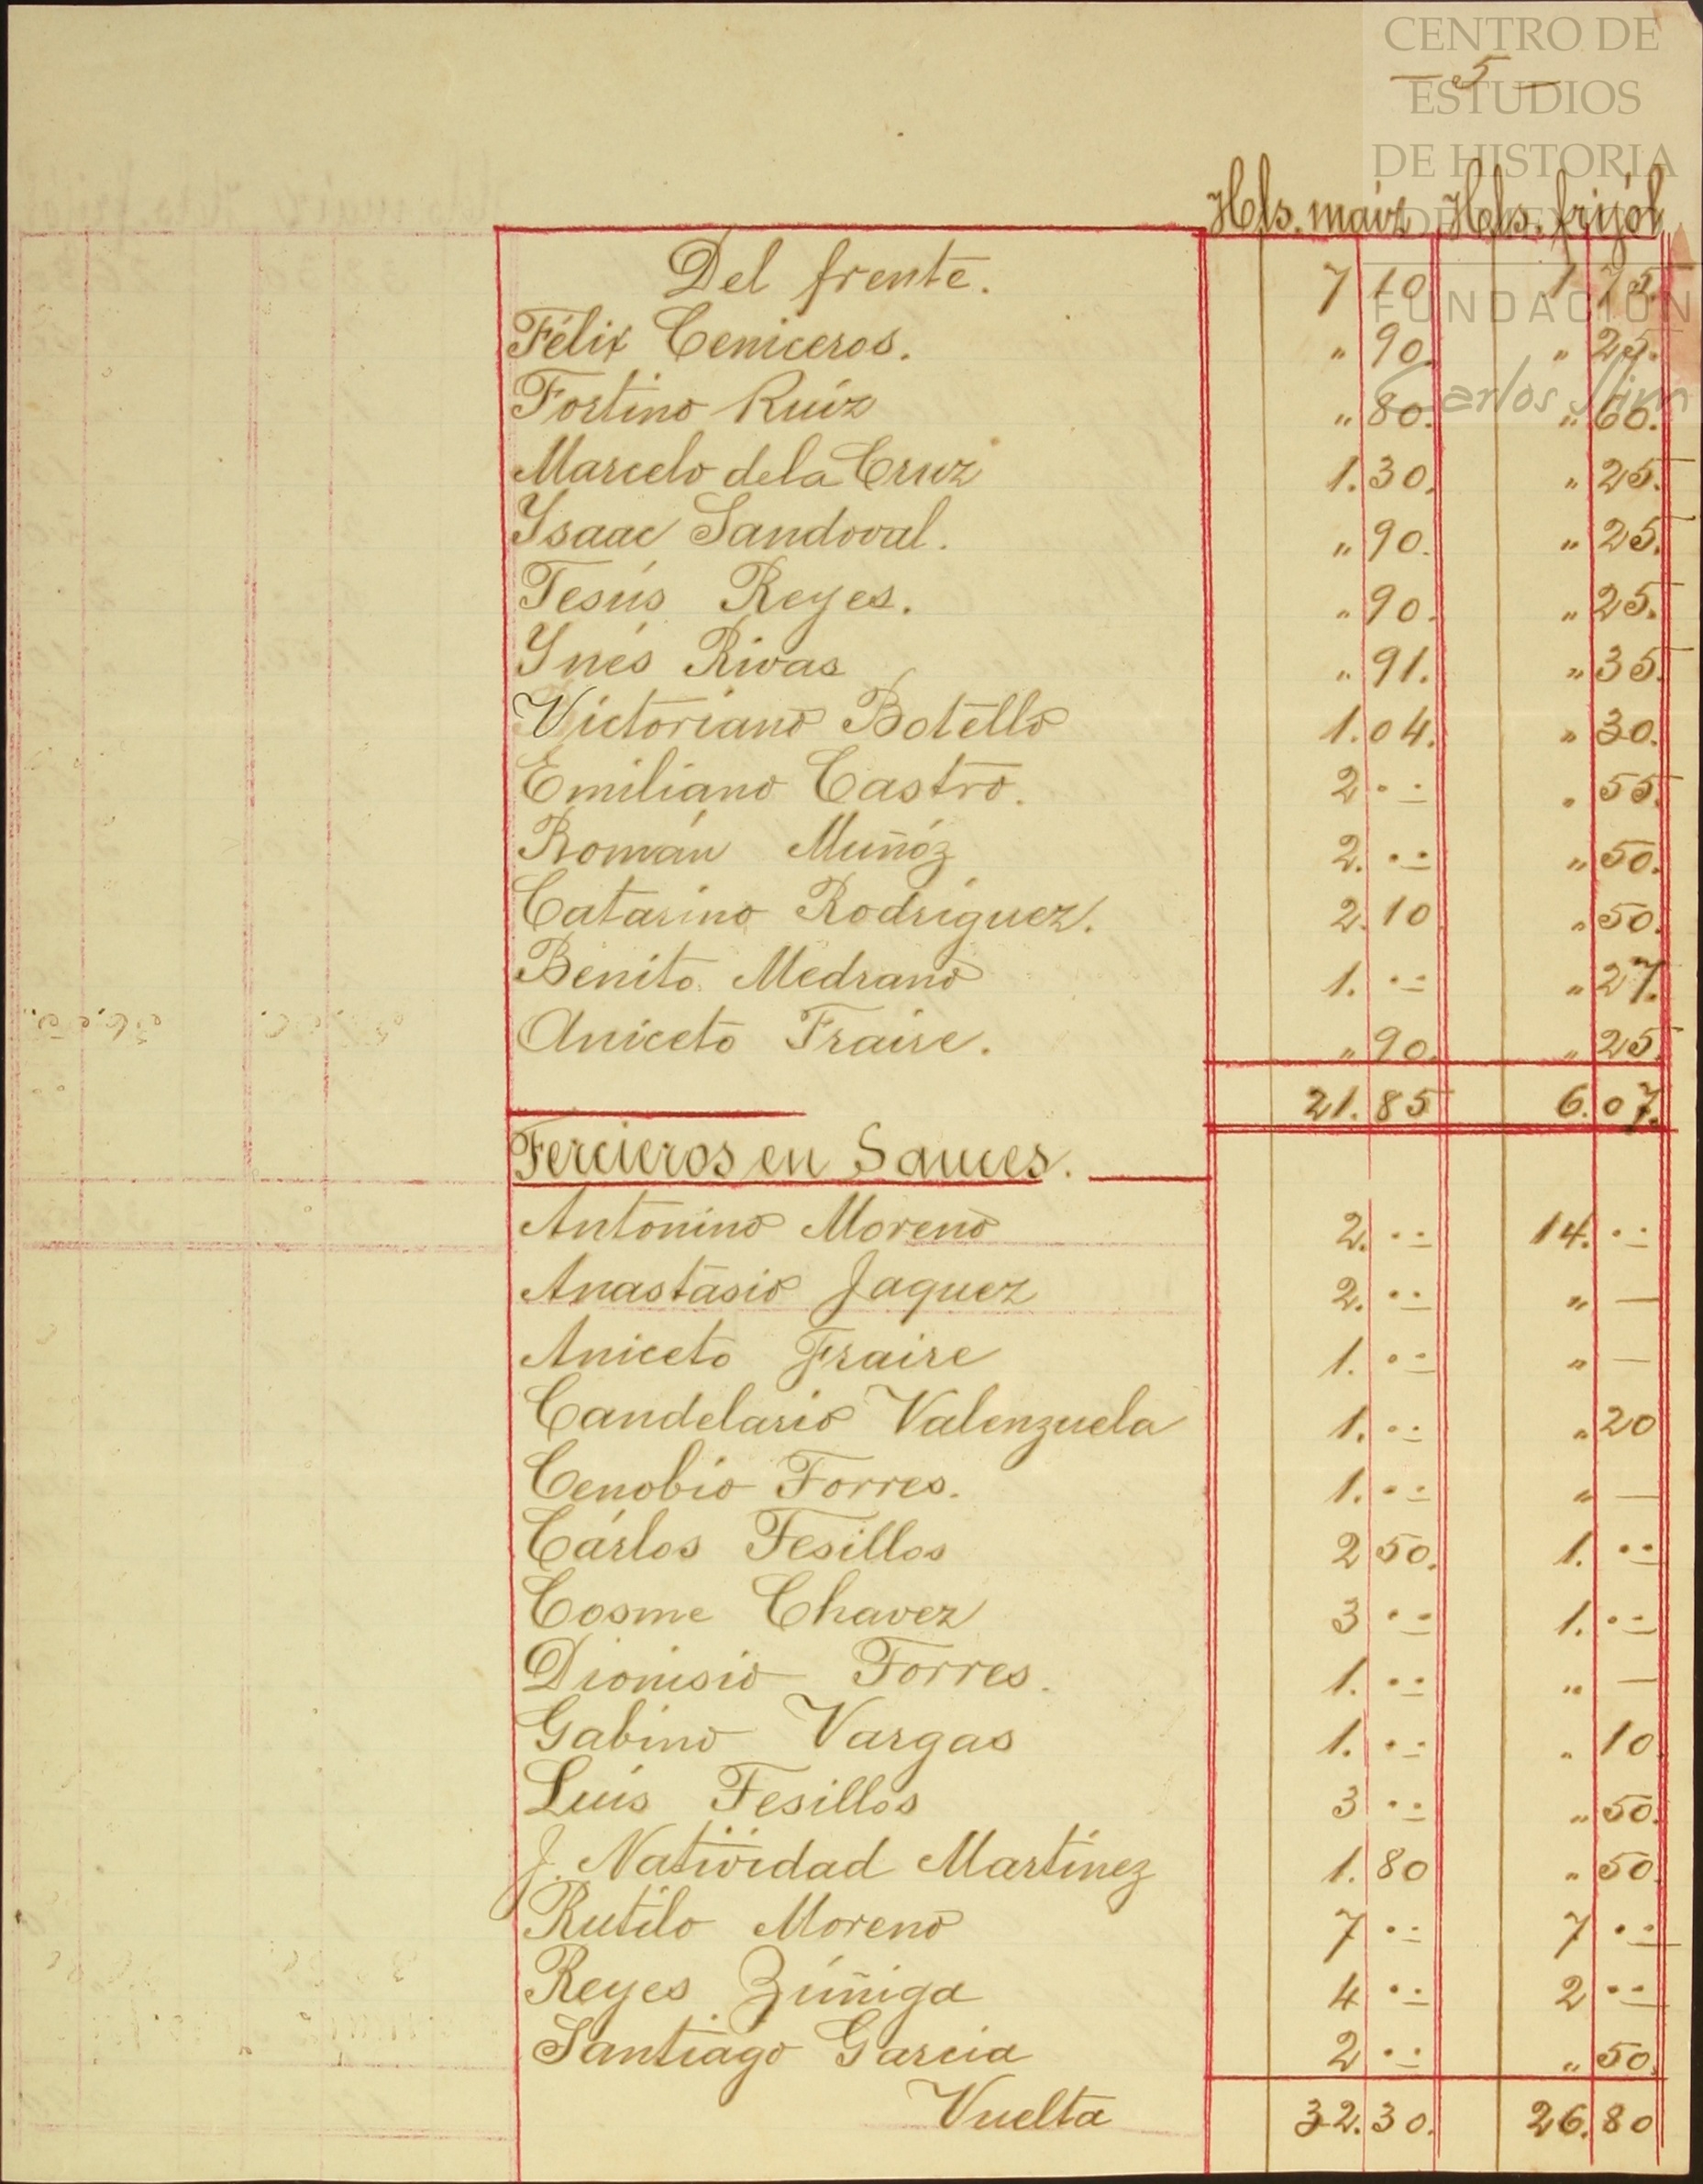 CENTRO DE
— 5 —
ESTUDIOS
DE HISTORIA
DE MEXICO
FUNDACIÓN
Carlos Slim
Hls. maíz Hls. frijól
Del frente. 7 10 1 75.
Félix Ceniceros. " 90. " 25.
Fortino Ruíz " 80. " 60.
Marcelo de la Cruz 1.30. " 25.
Ysaac Sandoval. " 90. " 25.
Jesús Reyes. " 90. " 25.
Ynés Rivas " 91. " 35.
Victoriano Botello 1.04. " 30.
Emiliano Castro. 2 .. " 55.
Román Muñóz 2. .. " 50.
Catarino Rodríguez. 2.10 " 50.
Benito Medrano 1. .. " 27.
Aniceto Fraire. " 90. " 25.
21.85 6.07.
Tercieros en Sauces.
Antonino Moreno 2. .. 14. ..
Anastasio Jaquez 2. .. " —
Aniceto Fraire 1. .. " —
Candelario Valenzuela 1. .. " 20
Cenobio Torres. 1. .. " —
Cárlos Tesillos 2 50. 1. ..
Cosme Chavez 3 .. 1. ..
Dionisio Torres. 1. .. " —
Gabino Vargas 1. .. " 10.
Luís Tesillos 3 .. " 50.
J. Natividad Martínez 1.80 " 50.
Rutilo Moreno 7 .. 7 ..
Reyes Zúñiga 4 .. 2 ..
Santiago Garcia 2 .. " 50.
Vuelta 32.30. 26.80